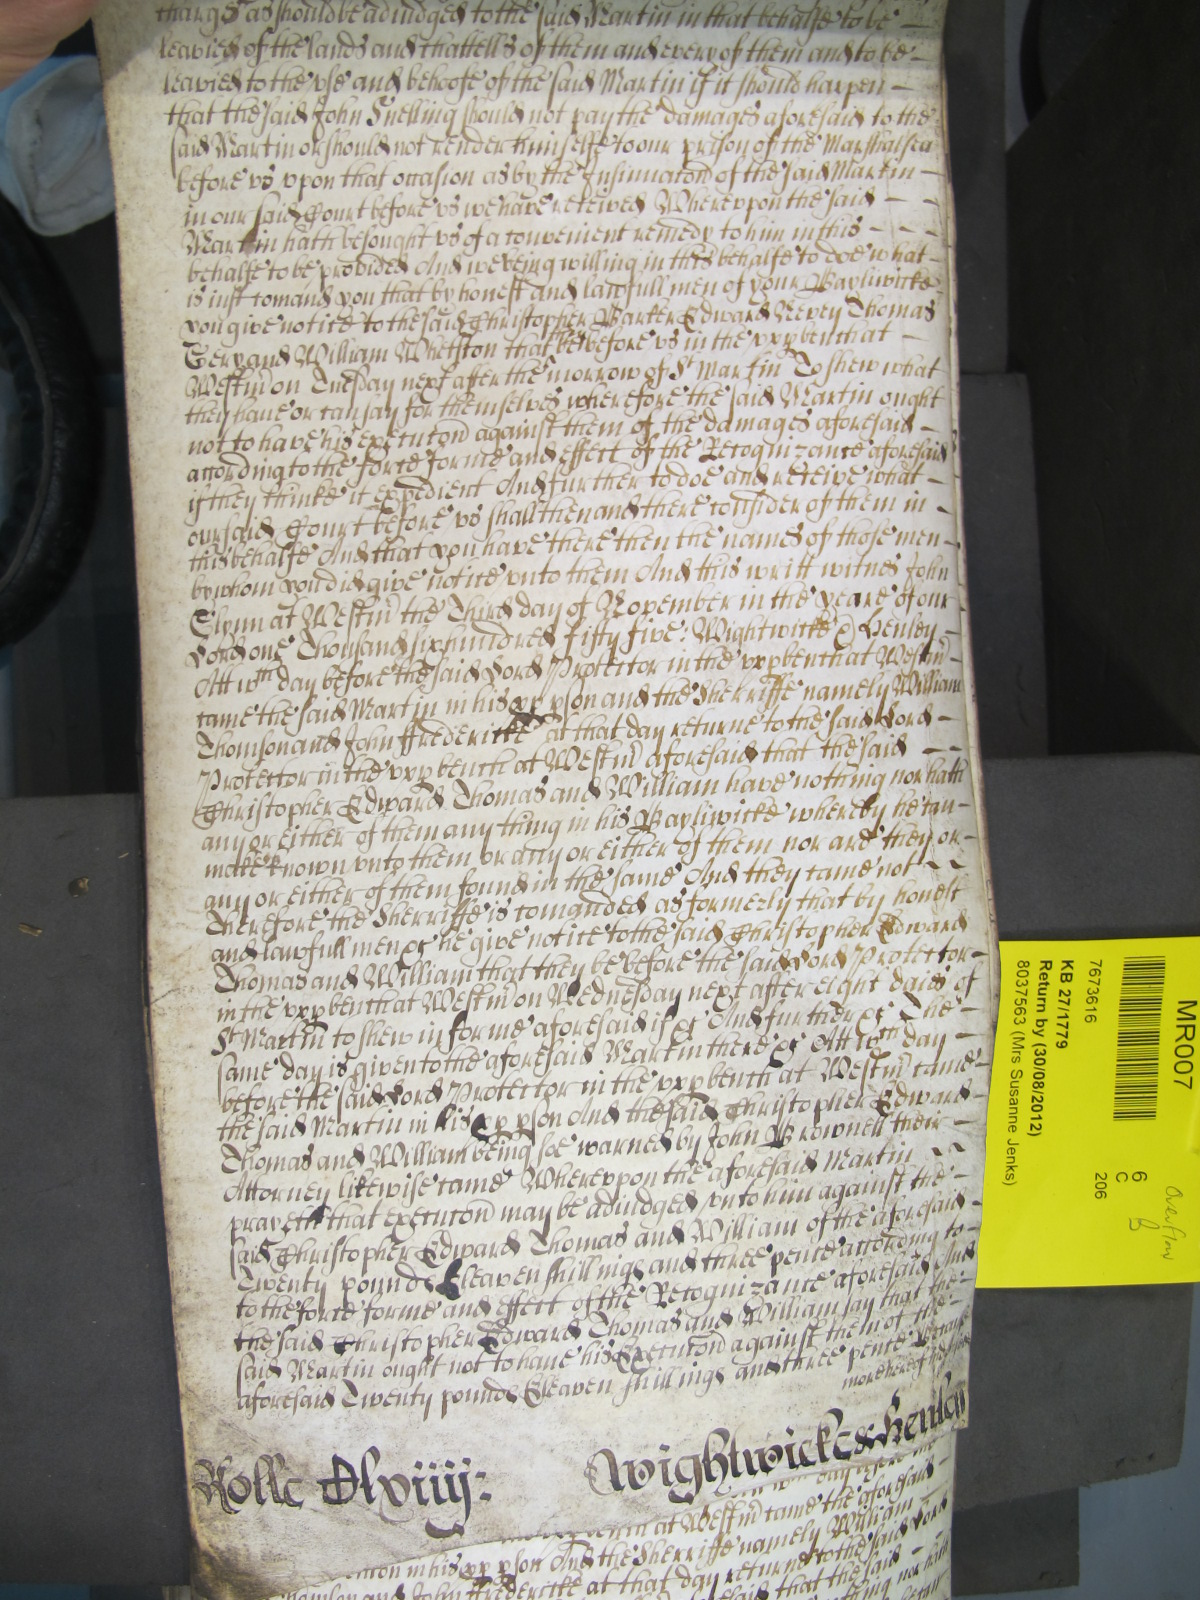 charges as should be adiudged to the said Martin in that behalfe to be
leavied of the lands and chattells of them and every of them and to be
leavied to the vse and behoofe of the said Martin if it should happen
that the said John Snelling should not pay the damages aforesaid to the
said Martin or should not render himselfe to our prison of the Marshalsea
before vs vpon that occasion as by the Insinuacon of the said Martin
in our said Court before vs we have received Wherevpon the said
Martin hath besought vs of a convenient remedy to him in this
behalfe to be provided And we being willing in this behalfe to doe what
is iust comand you that by honest and lawfull men of your Bayliwicke
you give notice to the said Christopher Barker Edward Nevey Thomas
Gery and William Whetston that be before vs in the vpp bench at
Westm on Tuesday next after the morrow of St Martin To shew what
they have or can say for themselves wherefore the said Martin ought
not to have his execucon against them of the damages aforesaid
according to the force forme and effect of the Recognizance aforesaid
if they thinke it expedient And further to doe and receive what
our said Court before vs shall then and there consider of them in
this behalfe And that you have there then the names of those men
by whom you did give notice vnto them And this writt witnes John
Glynn at Westm the Third day of November in the yeare of our
Lord one Thousand six hundred fifty five: Wightwicke & Henley
Att wch day before the said Lord Protector in the vpp bench at Westm
came the said Martin in his pp pson and the Sherriffe namely William
Thomson and John Fredericke at that day returne to the said Lord
Protector in the vpp bench at Westm aforesaid that the said
Christopher Edward Thomas and William have nothing nor hath
any or either of them any thing in his Bayliwicke whereby he can
make known vnto them or any or either of them nor are they or
any or either of them found in the same And they came not
Therefore the Sherriffe is comanded as formerly that by honest
and lawfull men &c he give notice to the said Christopher Edward
Thomas and William that they be before the said Lord Protector
in the vpp bench at Westm on Wednesday next after eight daies of
St Martin to shew in forme aforesaid if &c And further &c The
same day is given to the aforesaid Martin there &c Att wch day
before the said Lord Protector in the vpp bench at Westm came
the said Martin in his pp pson And the said Christopher Edward
Thomas and William being soe warned by John Brownell their
Attorney likewise came Wherevpon the aforesaid Martin
prayeth that execucon may be adiudged vnto him against the
said Christopher Edward Thomas and William of the aforesaid
Twenty pounds Eleaven shillings and three pence according to
to the force forme and effect of the Recognizance aforesaid And
the said Christopher Edward Thomas and William say that the
said Martin ought not to have his Execucon against them of the
aforesaid Twenty pounds Eleaven shillings and three pence because
more hereof
Rolle Dlxiiij: Wightwicke & Henley
at Westm came the aforesaid
in his pp pson And the Sherriffe namely William
and John Fredericke at that day returne to the said Lord
said that the said
thing nor hath
MR007
7673616
KB 27/1779
Return by (30/08/2012)
8037563 (Mrs Susanne Jenks)
6
C
206
Overflow
B